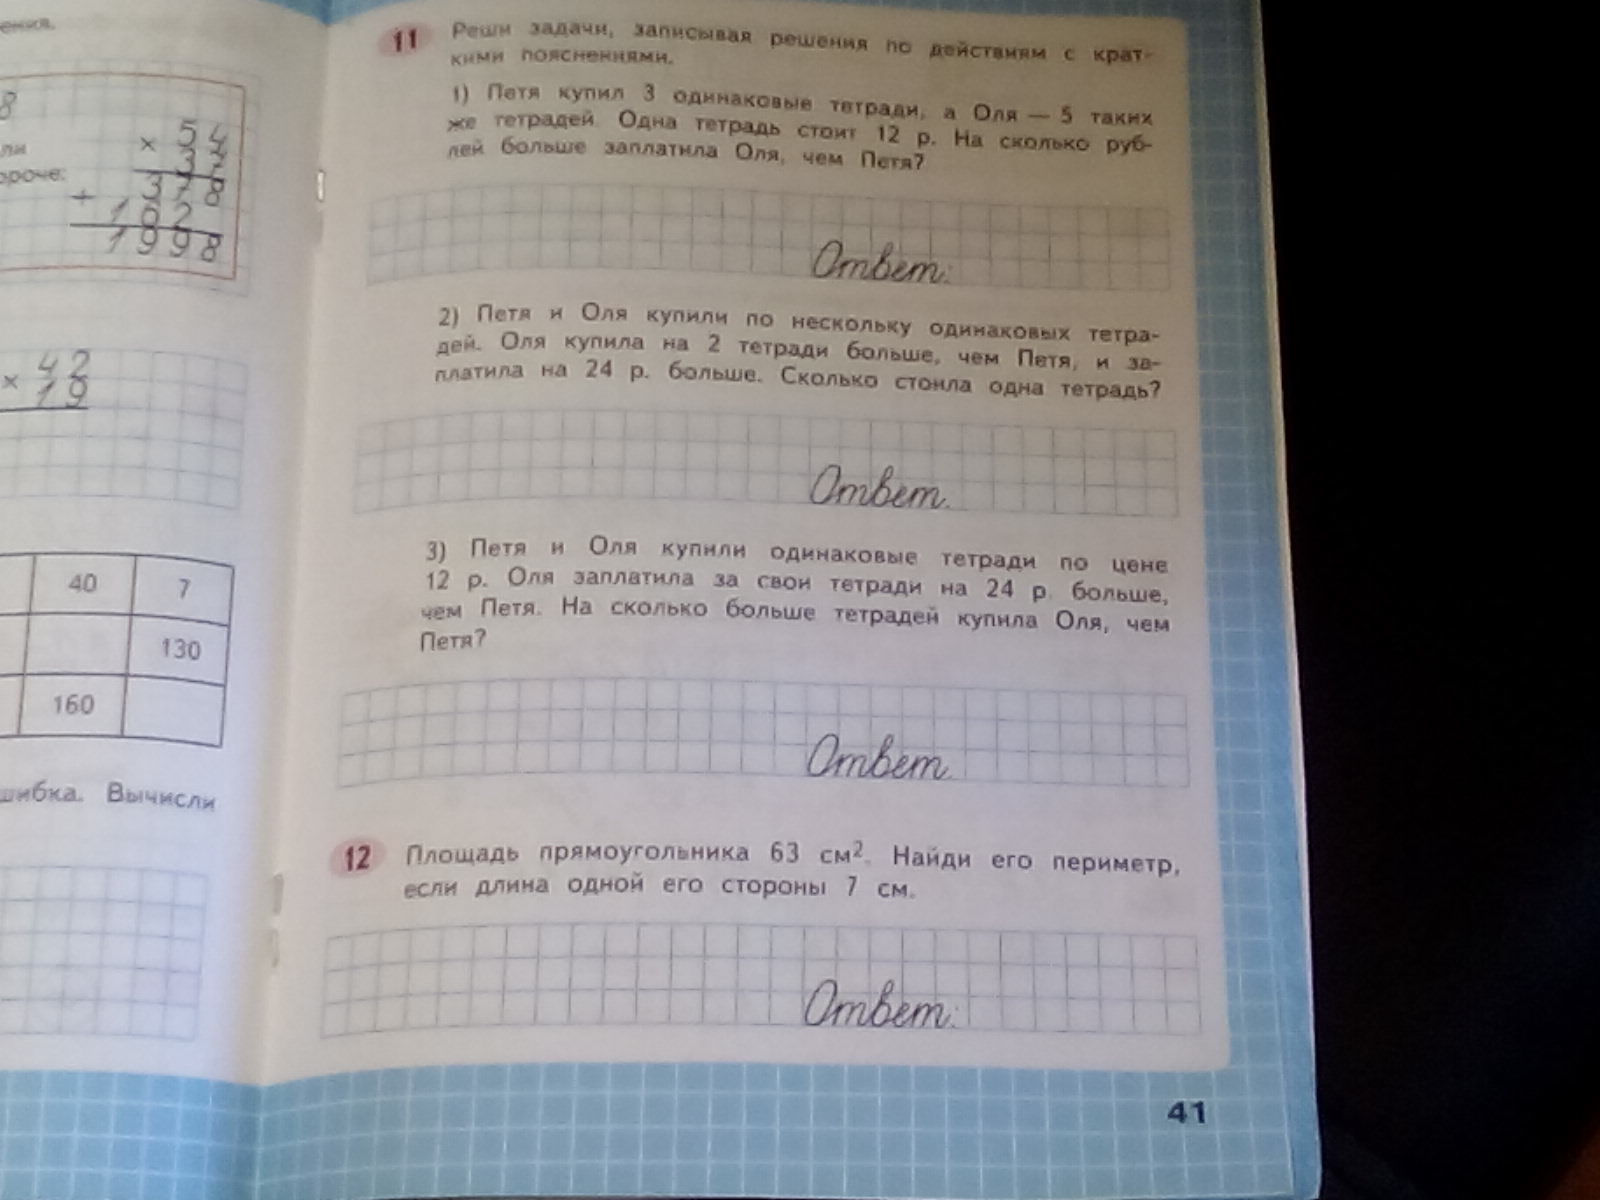 ения.
8
ли
ороче:
× 54
37
378
+ 162
1998
× 42
19
40 7
130
160
шибка. Вычисли
11 Реши задачи, записывая решения по действиям с крат-
кими пояснениями.
1) Петя купил 3 одинаковые тетради, а Оля — 5 таких
же тетрадей. Одна тетрадь стоит 12 р. На сколько руб-
лей больше заплатила Оля, чем Петя?
Ответ:
2) Петя и Оля купили по нескольку одинаковых тетра-
дей. Оля купила на 2 тетради больше, чем Петя, и за-
платила на 24 р. больше. Сколько стоила одна тетрадь?
Ответ.
3) Петя и Оля купили одинаковые тетради по цене
12 р. Оля заплатила за свои тетради на 24 р. больше,
чем Петя. На сколько больше тетрадей купила Оля, чем
Петя?
Ответ.
12 Площадь прямоугольника 63 см². Найди его периметр,
если длина одной его стороны 7 см.
Ответ:
41